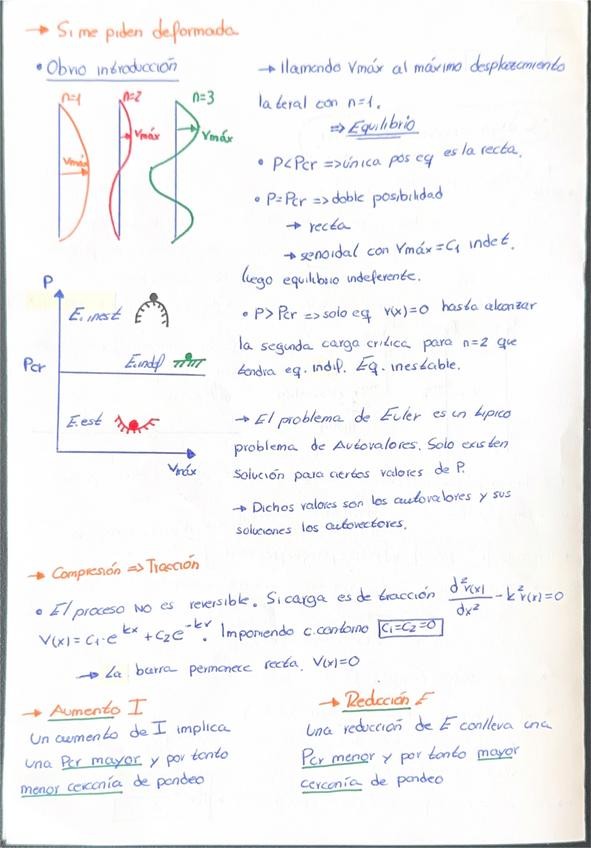 → Si me piden deformada
• Obvio introducción
n=1 n=2 n=3
Vmáx Vmáx Vmáx
→ llamando Vmáx al máximo desplazamiento
lateral con n=1.
⇒ Equilibrio
• P<Pcr ⇒ única pos eq es la recta.
• P=Pcr ⇒ doble posibilidad
→ recta
→ senoidal con Vmáx=C₁ indet.
luego equilibrio indeferente.
• P>Pcr ⇒ solo eq v(x)=0 hasta alcanzar
la segunda carga crítica para n=2 que
tendra eq. indif. Eq. inestable.
P
E.inest
Pcr
E.indif
E.est
Vmáx
→ El problema de Euler es un típico
problema de Autovalores. Solo existen
solución para ciertos valores de P.
→ Dichos valores son los autovalores y sus
soluciones los autovectores.
→ Compresión ⇒ Tracción
• El proceso NO es reversible. Si carga es de tracción d²v(x)/dx² - k²v(x)=0
V(x)= C₁·e^kx + C₂e^-kx. Imponiendo c.contorno C₁=C₂=0
→ La barra permanece recta. V(x)=0
→ Aumento I
Un aumento de I implica
una Pcr mayor y por tanto
menor cercanía de pandeo
→ Reducción E
Una reducción de E conlleva una
Pcr menor y por tanto mayor
cercanía de pandeo